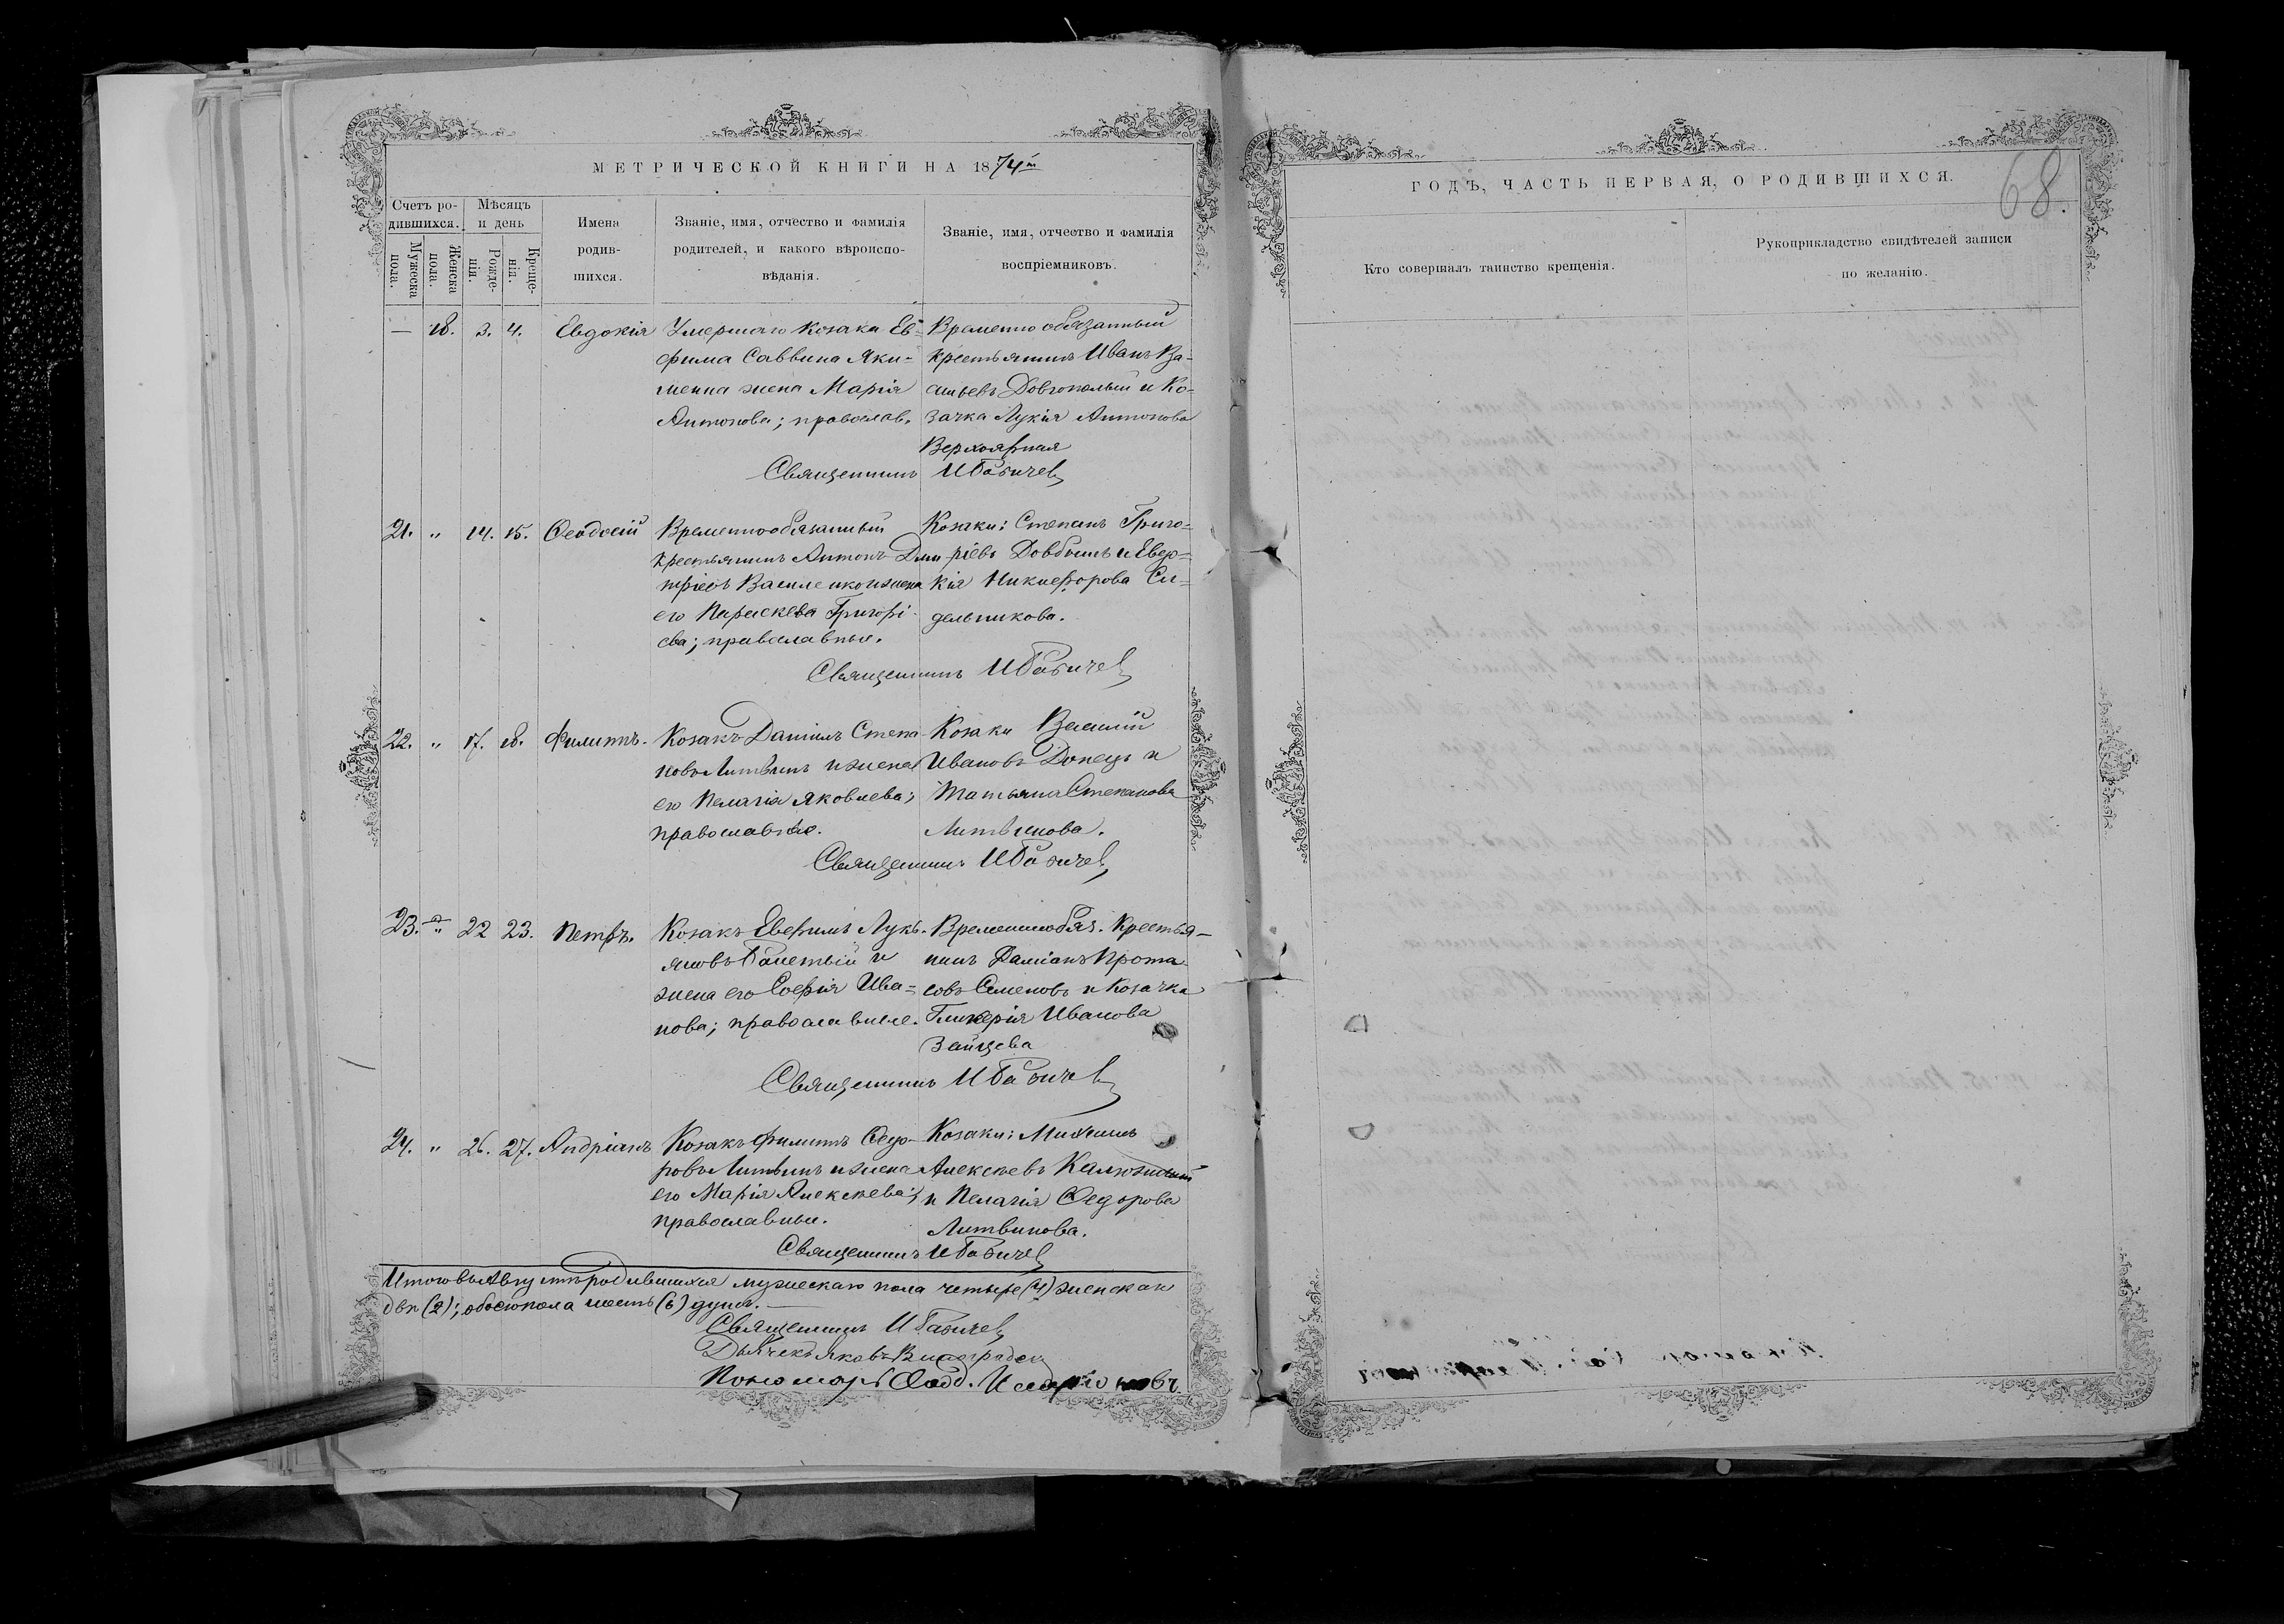 МЕТРИЧЕСКОЙ КНИГИ НА 1874й
Счетъ ро-
дившихся.
Мѣсяцъ
и день
Мужеска
пола.
Женска
пола.
Рожде-
нія.
Креще-
нія.
Имена
родив-
шихся.
Званіе, имя, отчество и фамилія
родителей, и какого вѣроиспо-
вѣданія.
Званіе, имя, отчество и фамилія
воспріемниковъ.
— 18. 3. 4. Евдокія
Умершаго Козака Ев-
фима Саввина Яки-
менка жена Марія
Антонова; православ.
Временно обязанный
крестьянинъ Иванъ Ва-
сильевъ Довгополый и Ко-
зачка Лукія Антонова
Верхоярная
Священникъ И Бабичев
21. " 14. 15. Ѳеодосій
Временнообязанный
крестьянинъ Антонъ Дми-
тріевъ Василенко и жена
его Параскева Григорі-
ева; православные.
Козаки: Степанъ Григо-
ріевъ Довбышъ и Евдо-
кія Никифорова Си-
дельникова.
Священникъ И Бабичев
22. " 17. 18. Филиппъ.
Козакъ Даніилъ Степа-
новъ Литвинъ и жена
его Пелагія Яковлева;
православные.
Козаки Василій
Ивановъ Донецъ и
Татьяна Степанова
Литвинова.
Священникъ И Бабичев
23. " 22 23. Петръ.
Козакъ Евфимъ Лукь-
яновъ и
жена его Софія Ива-
нова; православные.
Временнообяз. Крестья-
нинъ Даміанъ Прота-
совъ Семеновъ и Козачка
Гликерія Иванова
Зайцева
Священникъ И Бабичев
24. " 26. 27. Андріанъ
Козакъ Филиппъ Ѳедо-
ровъ Литвинъ и жена
его Марія Алексѣева;
православные.
Козаки: Михаилъ
Алексѣевъ Калюжный
и Пелагія Ѳедорова
Литвинова.
Священникъ И Бабичев
Итого въ Августѣ родившихся мужескаго пола четыре (4) женскаго
двѣ (2); обоего пола шесть (6) душъ. —
Священникъ И Бабичев
Дьячекъ Яковъ
Пономарь Ѳеод.
ГОДЪ, ЧАСТЬ ПЕРВАЯ, О РОДИВШИХСЯ.
68.
Кто совершалъ таинство крещенія.
Рукоприкладство свидѣтелей записи
по желанію.